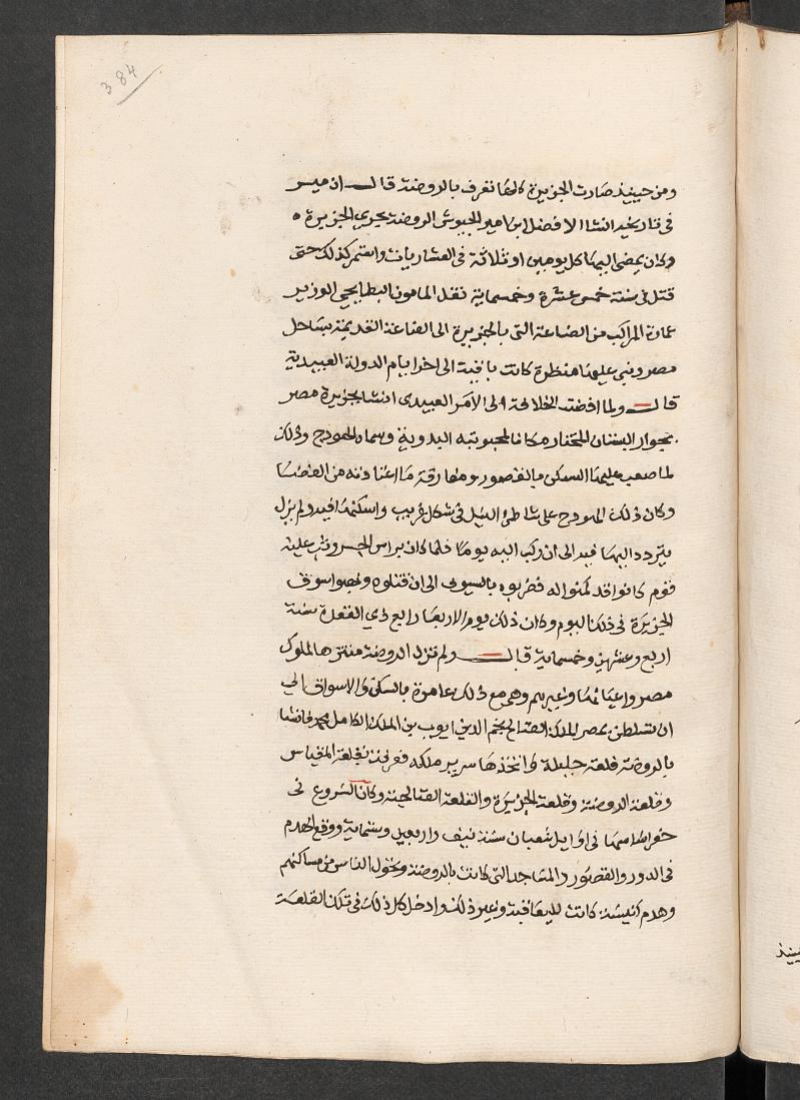 384
ومن حينيذ صارت الجزيرة كلها تعرف بالروضة قال ابن ميسر
فى تاريخه انشا الافضل ابن امير الجيوش الروضة بحرى الجزيرة ه
وكان يمضى اليها كل يومين او ثلاثة فى العشاريات واستمر كذلك حتى
قتل فى سنة خمس عشرة وخمسماية نقل المامون البطايحى الوزير
عمارة المراكب من الصناعة التى بالجزيرة الى الصناعة القديمة بساحل
مصر وبنى عليها منظرة كانت باقية الى اخر ايام الدولة العبيدية
قال ولما افضت الخلافة الى الآمر العبيدى انشا بجزيرة مصر
بجوار البستان المختار مكانا لمحبوبته البدوية وسماه الهودج وذلك
لما صعب عليها السكنى بالقصور ومفارقة ما اعتادته من الفضا
وكان ذلك الهودج على شاطئ النيل فى شكل غريب واسكنها فيه ولم يزل
يتردد اليها فيه الى ان ركب اليه يوما فلما كان براس الجسر وثب عليه
قوم كانوا قد كمنوا له فضربوه بالسيوف الى ان قتلوه ونهبوا سوق
الجزيرة فى ذلك اليوم وكان ذلك يوم الاربعا رابع ذي القعدة سنة
اربع وعشرين وخمسماية قال ولم تزل الروضة منتزها لملوك
مصر واعيانها وغيرهم وهى مع ذلك عامرة بالسكنى والاسواق الى
ان تسلطن بمصر الملك الصالح نجم الدين ايوب بن الملك الكامل محمد فانشا
بالروضة قلعة جليلة واتخذها سرير ملكه فعرفت بقلعة المقياس
وقلعة الروضة وقلعة الجزيرة والقلعة الصالحية وكان الشروع فى
حفر اساسها فى اوايل شعبان سنة نيف واربعين وستماية ووقع الهدم
فى الدور والقصور والمساجد التى كانت بالروضة وتحول الناس من مساكنهم
وهدم كنيسة كانت لليعاقبة وغير ذلك وادخل كل ذلك فى تلك القلعة